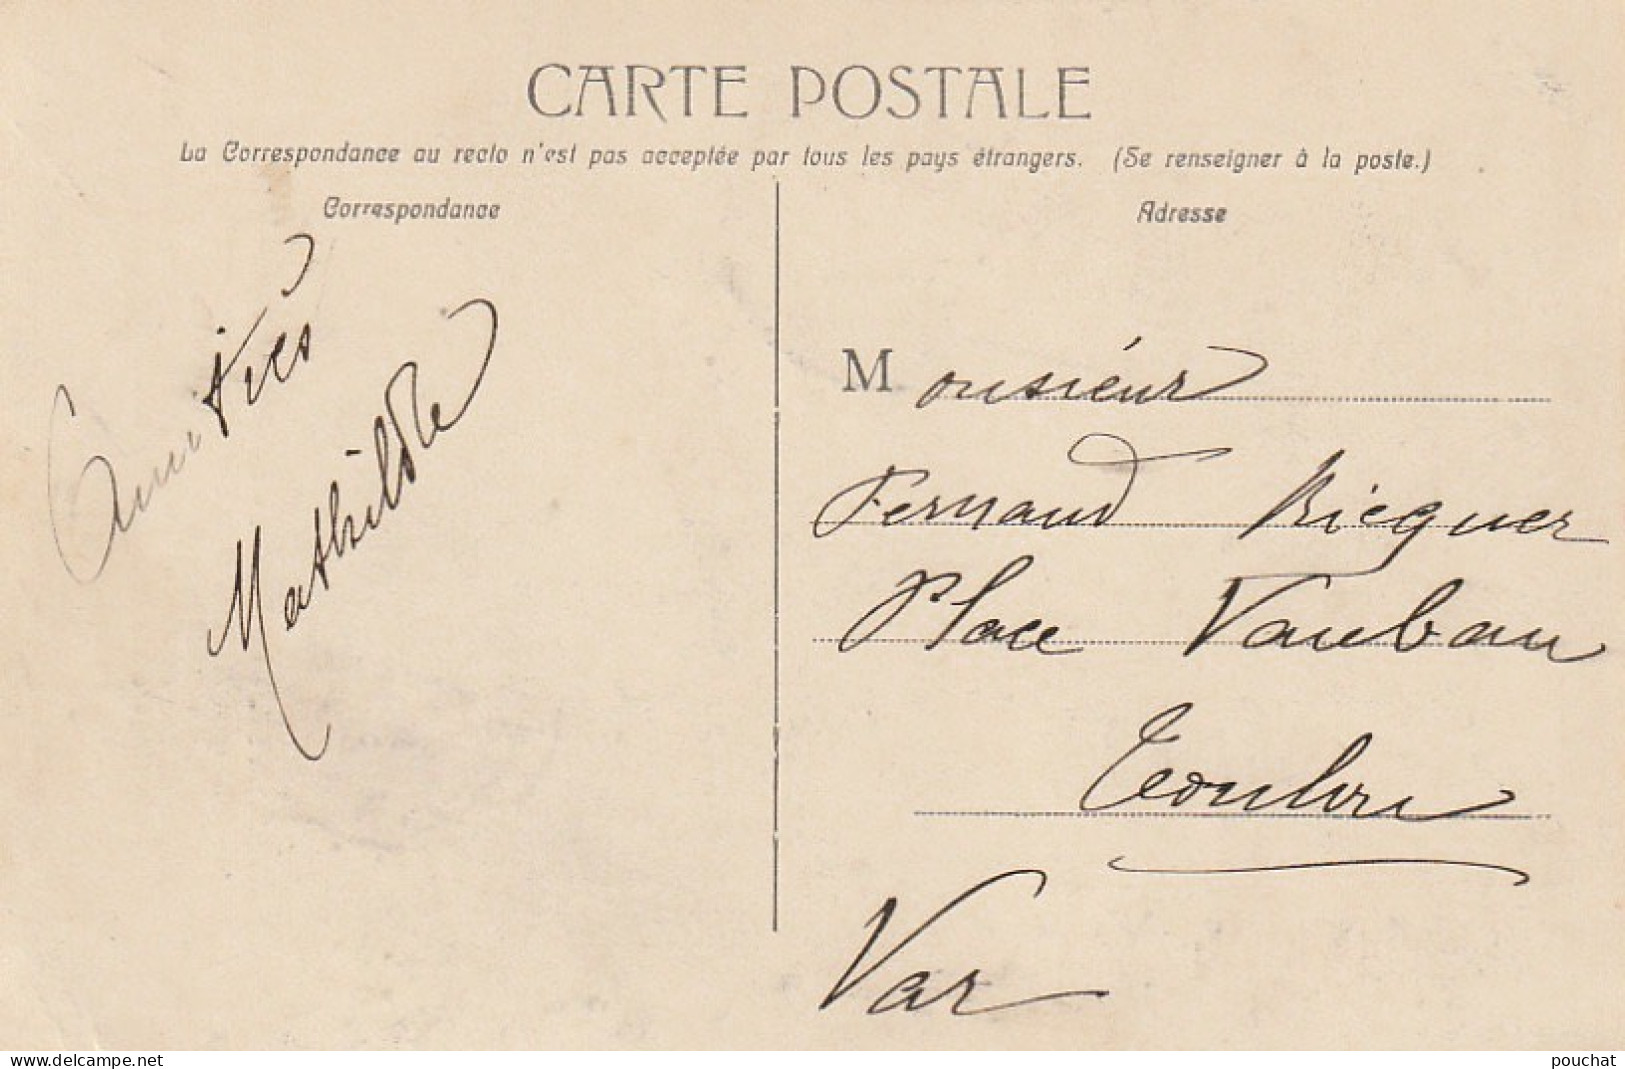 CARTE POSTALE
La Correspondance au recto n'est pas acceptée par tous les pays étrangers. (Se renseigner à la poste.)
Correspondance
Adresse
Amitiés
Mathilde
Monsieur
Fernand Rieguer
Place Vauban
Toulon
Var
www.delcampe.net
pouchat